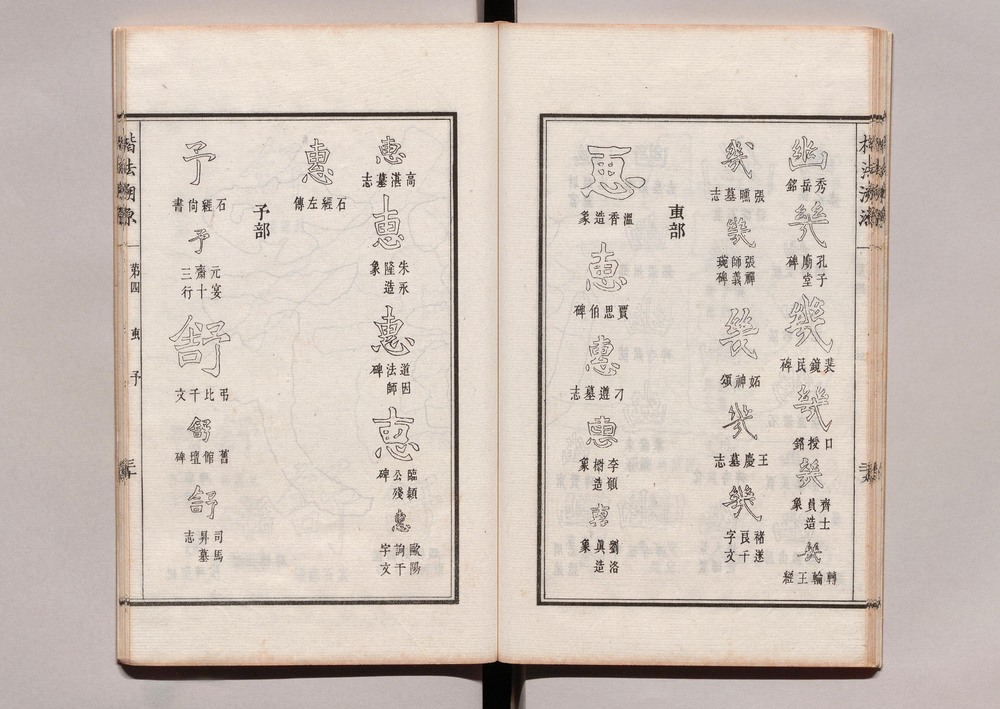 楷法溯源
幽
秀岳銘
幾
孔子廟堂碑
幾
裴鏡民碑
幾
口授銘
幾
齊士員造象
幾
轉輪王經
幾
張墓志
幾
張禪師義琬碑
幾
妬神頌
幾
王慶墓志
幾
褚遂良千字文
叀部
惠
溫香造象
惠
賈思伯碑
惠
刁遵墓志
惠
李造象
惠
劉洛眞造象
惠
高湛墓志
惠
朱永隆造象
惠
道因法師碑
惠
臨潁公殘碑
惠
歐陽詢千字文
惠
石經左傳
予部
予
石經尙書
予
元宴齋十三行
舒
弔比干文
舒
舊館壇碑
舒
司馬昇墓志
楷法溯源
第四
叀
予